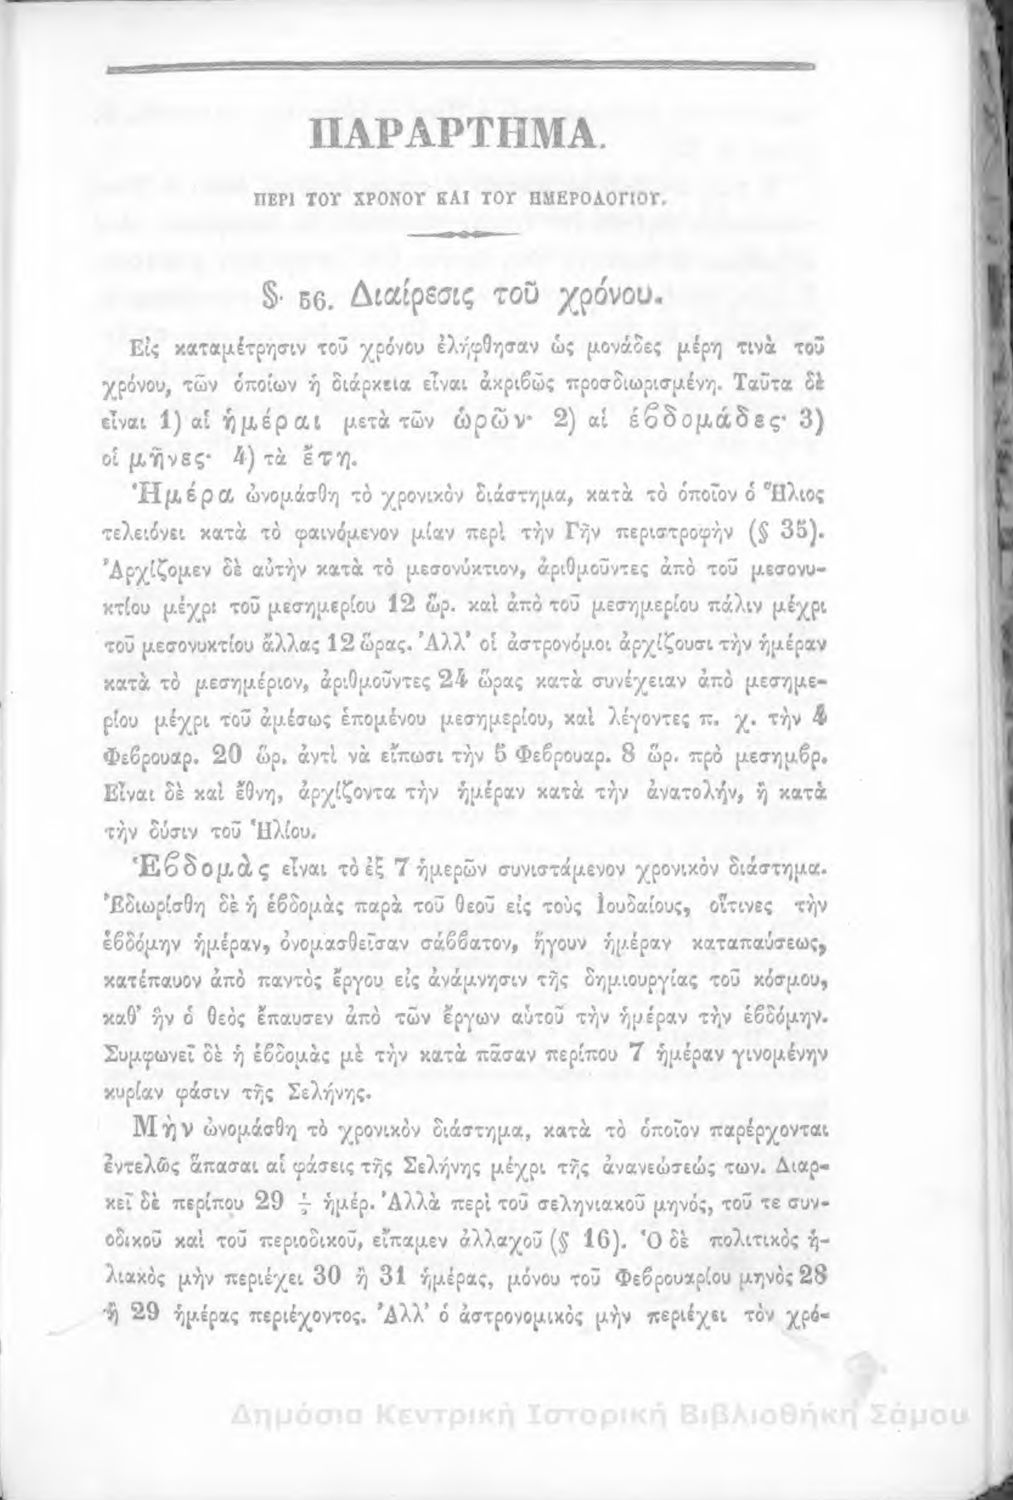 ΠΑΡΑΡΤΗΜΑ.
ΠΕΡΙ ΤΟΥ ΧΡΟΝΟΥ ΚΑΙ ΤΟΥ ΗΜΕΡΟΛΟΓΙΟΥ.
§· 56. Διαίρεσις τοῦ χρόνου.
Εἰς καταμέτρησιν τοῦ χρόνου ἐλήφθησαν ὡς μονάδες μέρη τινὰ τοῦ
χρόνου, τῶν ὁποίων ἡ διάρκεια εἶναι ἀκριβῶς προσδιωρισμένη. Ταῦτα δὲ
εἶναι 1) αἱ ἡμέραι μετὰ τῶν ὡρῶν· 2) αἱ ἑβδομάδες· 3)
οἱ μῆνες· 4) τὰ ἔτη.
Ἡμέρα ὠνομάσθη τὸ χρονικὸν διάστημα, κατὰ τὸ ὁποῖον ὁ Ἥλιος
τελειόνει κατὰ τὸ φαινόμενον μίαν περὶ τὴν Γῆν περιστροφὴν (§ 35).
Ἀρχίζομεν δὲ αὐτὴν κατὰ τὸ μεσονύκτιον, ἀριθμοῦντες ἀπὸ τοῦ μεσονυ-
κτίου μέχρι τοῦ μεσημερίου 12 ὥρ. καὶ ἀπὸ τοῦ μεσημερίου πάλιν μέχρι
τοῦ μεσονυκτίου ἄλλας 12 ὥρας. Ἀλλ' οἱ ἀστρονόμοι ἀρχίζουσι τὴν ἡμέραν
κατὰ τὸ μεσημέριον, ἀριθμοῦντες 24 ὥρας κατὰ συνέχειαν ἀπὸ μεσημε-
ρίου μέχρι τοῦ ἀμέσως ἑπομένου μεσημερίου, καὶ λέγοντες π. χ. τὴν 4
Φεβρουαρ. 20 ὥρ. ἀντὶ νὰ εἴπωσι τὴν 5 Φεβρουαρ. 8 ὥρ. πρὸ μεσημβρ.
Εἶναι δὲ καὶ ἔθνη, ἀρχίζοντα τὴν ἡμέραν κατὰ τὴν ἀνατολήν, ἢ κατὰ
τὴν δύσιν τοῦ Ἡλίου.
Ἑβδομὰς εἶναι τὸ ἐξ 7 ἡμερῶν συνιστάμενον χρονικὸν διάστημα.
Ἐδιωρίσθη δὲ ἡ ἑβδομὰς παρὰ τοῦ θεοῦ εἰς τοὺς Ἰουδαίους, οἵτινες τὴν
ἑβδόμην ἡμέραν, ὀνομασθεῖσαν σάββατον, ἤγουν ἡμέραν καταπαύσεως,
κατέπαυον ἀπὸ παντὸς ἔργου εἰς ἀνάμνησιν τῆς δημιουργίας τοῦ κόσμου,
καθ' ἣν ὁ θεὸς ἔπαυσεν ἀπὸ τῶν ἔργων αὑτοῦ τὴν ἡμέραν τὴν ἑβδόμην.
Συμφωνεῖ δὲ ἡ ἑβδομὰς μὲ τὴν κατὰ πᾶσαν περίπου 7 ἡμέραν γινομένην
κυρίαν φάσιν τῆς Σελήνης.
Μὴν ὠνομάσθη τὸ χρονικὸν διάστημα, κατὰ τὸ ὁποῖον παρέρχονται
ἐντελῶς ἅπασαι αἱ φάσεις τῆς Σελήνης μέχρι τῆς ἀνανεώσεώς των. Διαρ-
κεῖ δὲ περίπου 29 ἡμέρ. Ἀλλὰ περὶ τοῦ σεληνιακοῦ μηνός, τοῦ τε συν-
οδικοῦ καὶ τοῦ περιοδικοῦ, εἴπαμεν ἀλλαχοῦ (§ 16). Ὁ δὲ πολιτικὸς ἡ-
λιακὸς μὴν περιέχει 30 ἢ 31 ἡμέρας, μόνου τοῦ Φεβρουαρίου μηνὸς 28
ἢ 29 ἡμέρας περιέχοντος. Ἀλλ' ὁ ἀστρονομικὸς μὴν περιέχει τὸν χρό-
Δημόσια Κεντρική Ιστορική Βιβλιοθήκη Σάμου